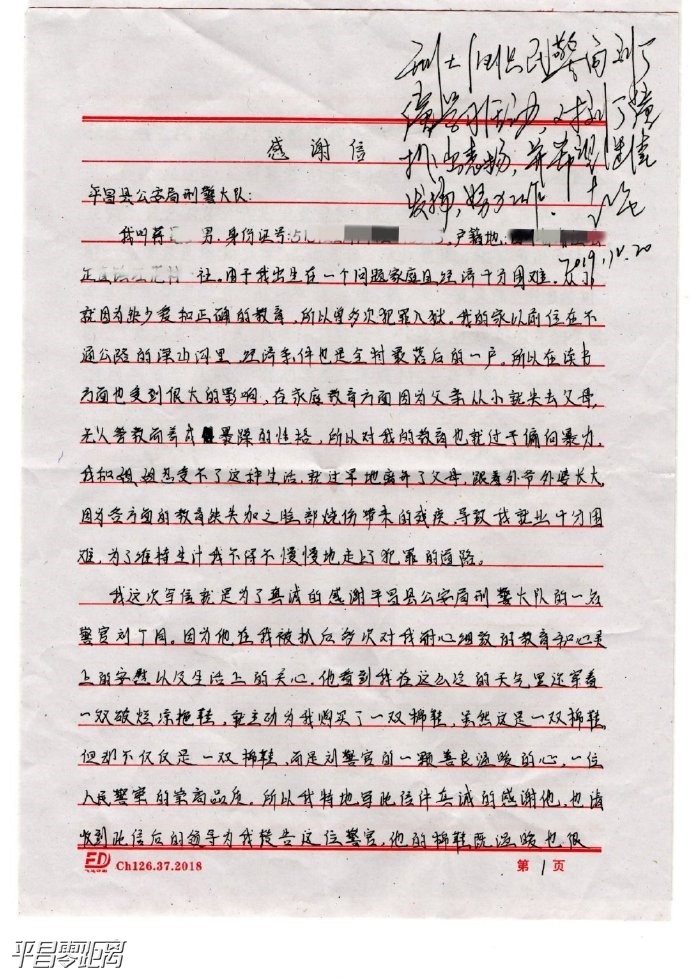 民警向刘丁
学习活动，对刘丁
提出表扬，并希望继续
发扬，努力工作。
2019.12.20
感谢信
平昌县公安局刑警大队：
我叫蒋 男，身份证号：51 户籍地：
社。由于我出生在一个问题家庭且经济十分困难。从小
就因为缺少爱和正确的教育，所以曾多次犯罪入狱。我的家以前住在不
通公路的深山沟里，经济条件也是全村最落后的一户。所以在读书
方面也受到很大的影响，在家庭教育方面因为父亲从小就失去父母，
无人管教而养成暴躁的性格，所以对我的教育也就过于偏向暴力，
我和姐姐忍受不了这种生活，就过早地离开了父母，跟着外爷外婆长大，
因为各方面的教育缺失加之脸部烧伤带来的残疾，导致我就业十分困
难，为了维持生计我不得不慢慢地走上了犯罪的道路。
我这次写信就是为了真诚的感谢平昌县公安局刑警大队的一名
警官刘丁。因为他在我被抓后多次对我耐心细致的教育和心灵
上的安慰以及生活上的关心，他看到我在这么冷的天气里还穿着
一双破烂凉拖鞋，就主动为我购买了一双棉鞋，虽然这是一双棉鞋，
但却不仅仅是一双棉鞋，而是刘警官的一颗善良温暖的心，一位
人民警察的崇高品度，所以我特地写此信件真诚的感谢他，也请
收到此信后的领导为我转告这位警官，他的棉鞋既温暖也很
ED Ch126.37.2018 第 1 页
平昌零距离